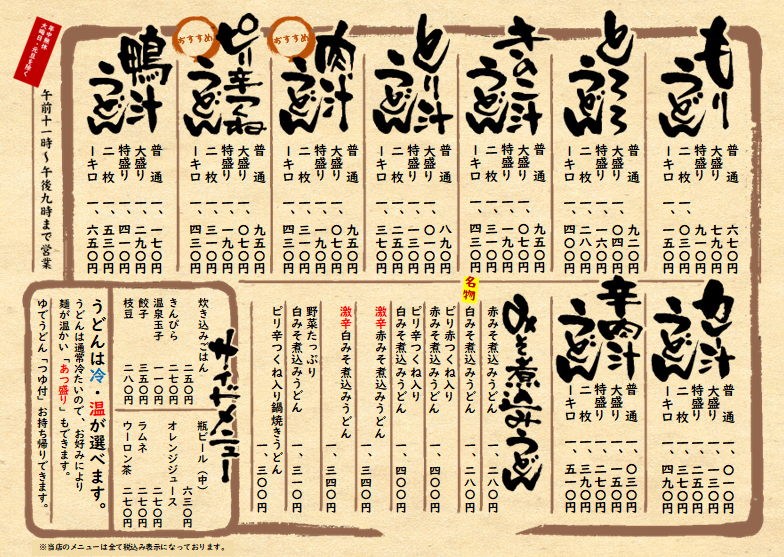 もりうどん
普通 六七〇円
大盛り 七九〇円
特盛り 九一〇円
二枚 一、〇三〇円
一キロ 一、一五〇円
とろろうどん
普通 九二〇円
大盛り 一、〇四〇円
特盛り 一、一六〇円
二枚 一、二八〇円
一キロ 一、四〇〇円
きのこ汁うどん
普通 九五〇円
大盛り 一、〇七〇円
特盛り 一、一九〇円
二枚 一、三一〇円
一キロ 一、四三〇円
とり汁うどん
普通 八九〇円
大盛り 一、〇一〇円
特盛り 一、一三〇円
二枚 一、二五〇円
一キロ 一、三七〇円
おすすめ
肉汁うどん
普通 九五〇円
大盛り 一、〇七〇円
特盛り 一、一九〇円
二枚 一、三一〇円
一キロ 一、四三〇円
おすすめ
ピリ辛つくねうどん
普通 九五〇円
大盛り 一、〇七〇円
特盛り 一、一九〇円
二枚 一、三一〇円
一キロ 一、四三〇円
鴨汁うどん
普通 一、一七〇円
大盛り 一、二九〇円
特盛り 一、四一〇円
二枚 一、五三〇円
一キロ 一、六五〇円
年中無休
大晦日・元旦を除く
午前十一時～午後九時まで営業
カレー汁うどん
普通 一、〇一〇円
大盛り 一、一三〇円
特盛り 一、二五〇円
二枚 一、三七〇円
一キロ 一、四九〇円
辛肉汁うどん
普通 一、〇三〇円
大盛り 一、一五〇円
特盛り 一、二七〇円
二枚 一、三九〇円
一キロ 一、五一〇円
みそ煮込みうどん
赤みそ煮込みうどん 一、二八〇円
名物
白みそ煮込みうどん 一、二八〇円
ピリ赤つくね入り
赤みそ煮込みうどん 一、四〇〇円
ピリ辛つくね入り
白みそ煮込みうどん 一、四〇〇円
激辛赤みそ煮込みうどん 一、三四〇円
激辛白みそ煮込みうどん 一、三四〇円
野菜たっぷり
白みそ煮込みうどん 一、三一〇円
ピリ辛つくね入り鍋焼きうどん 一、三〇〇円
サイドメニュー
炊き込みごはん 二五〇円
きんぴら 二七〇円
温泉玉子 一一〇円
餃子 三五〇円
枝豆 二八〇円
瓶ビール(中) 六三〇円
オレンジジュース 二七〇円
ラムネ 二七〇円
ウーロン茶 二七〇円
うどんは冷・温が選べます。
うどんは通常冷たいので、お好みにより
麺が温かい「あつ盛り」もできます。
ゆでうどん「つゆ付」お持ち帰りできます。
※当店のメニューは全て税込み表示になっております。